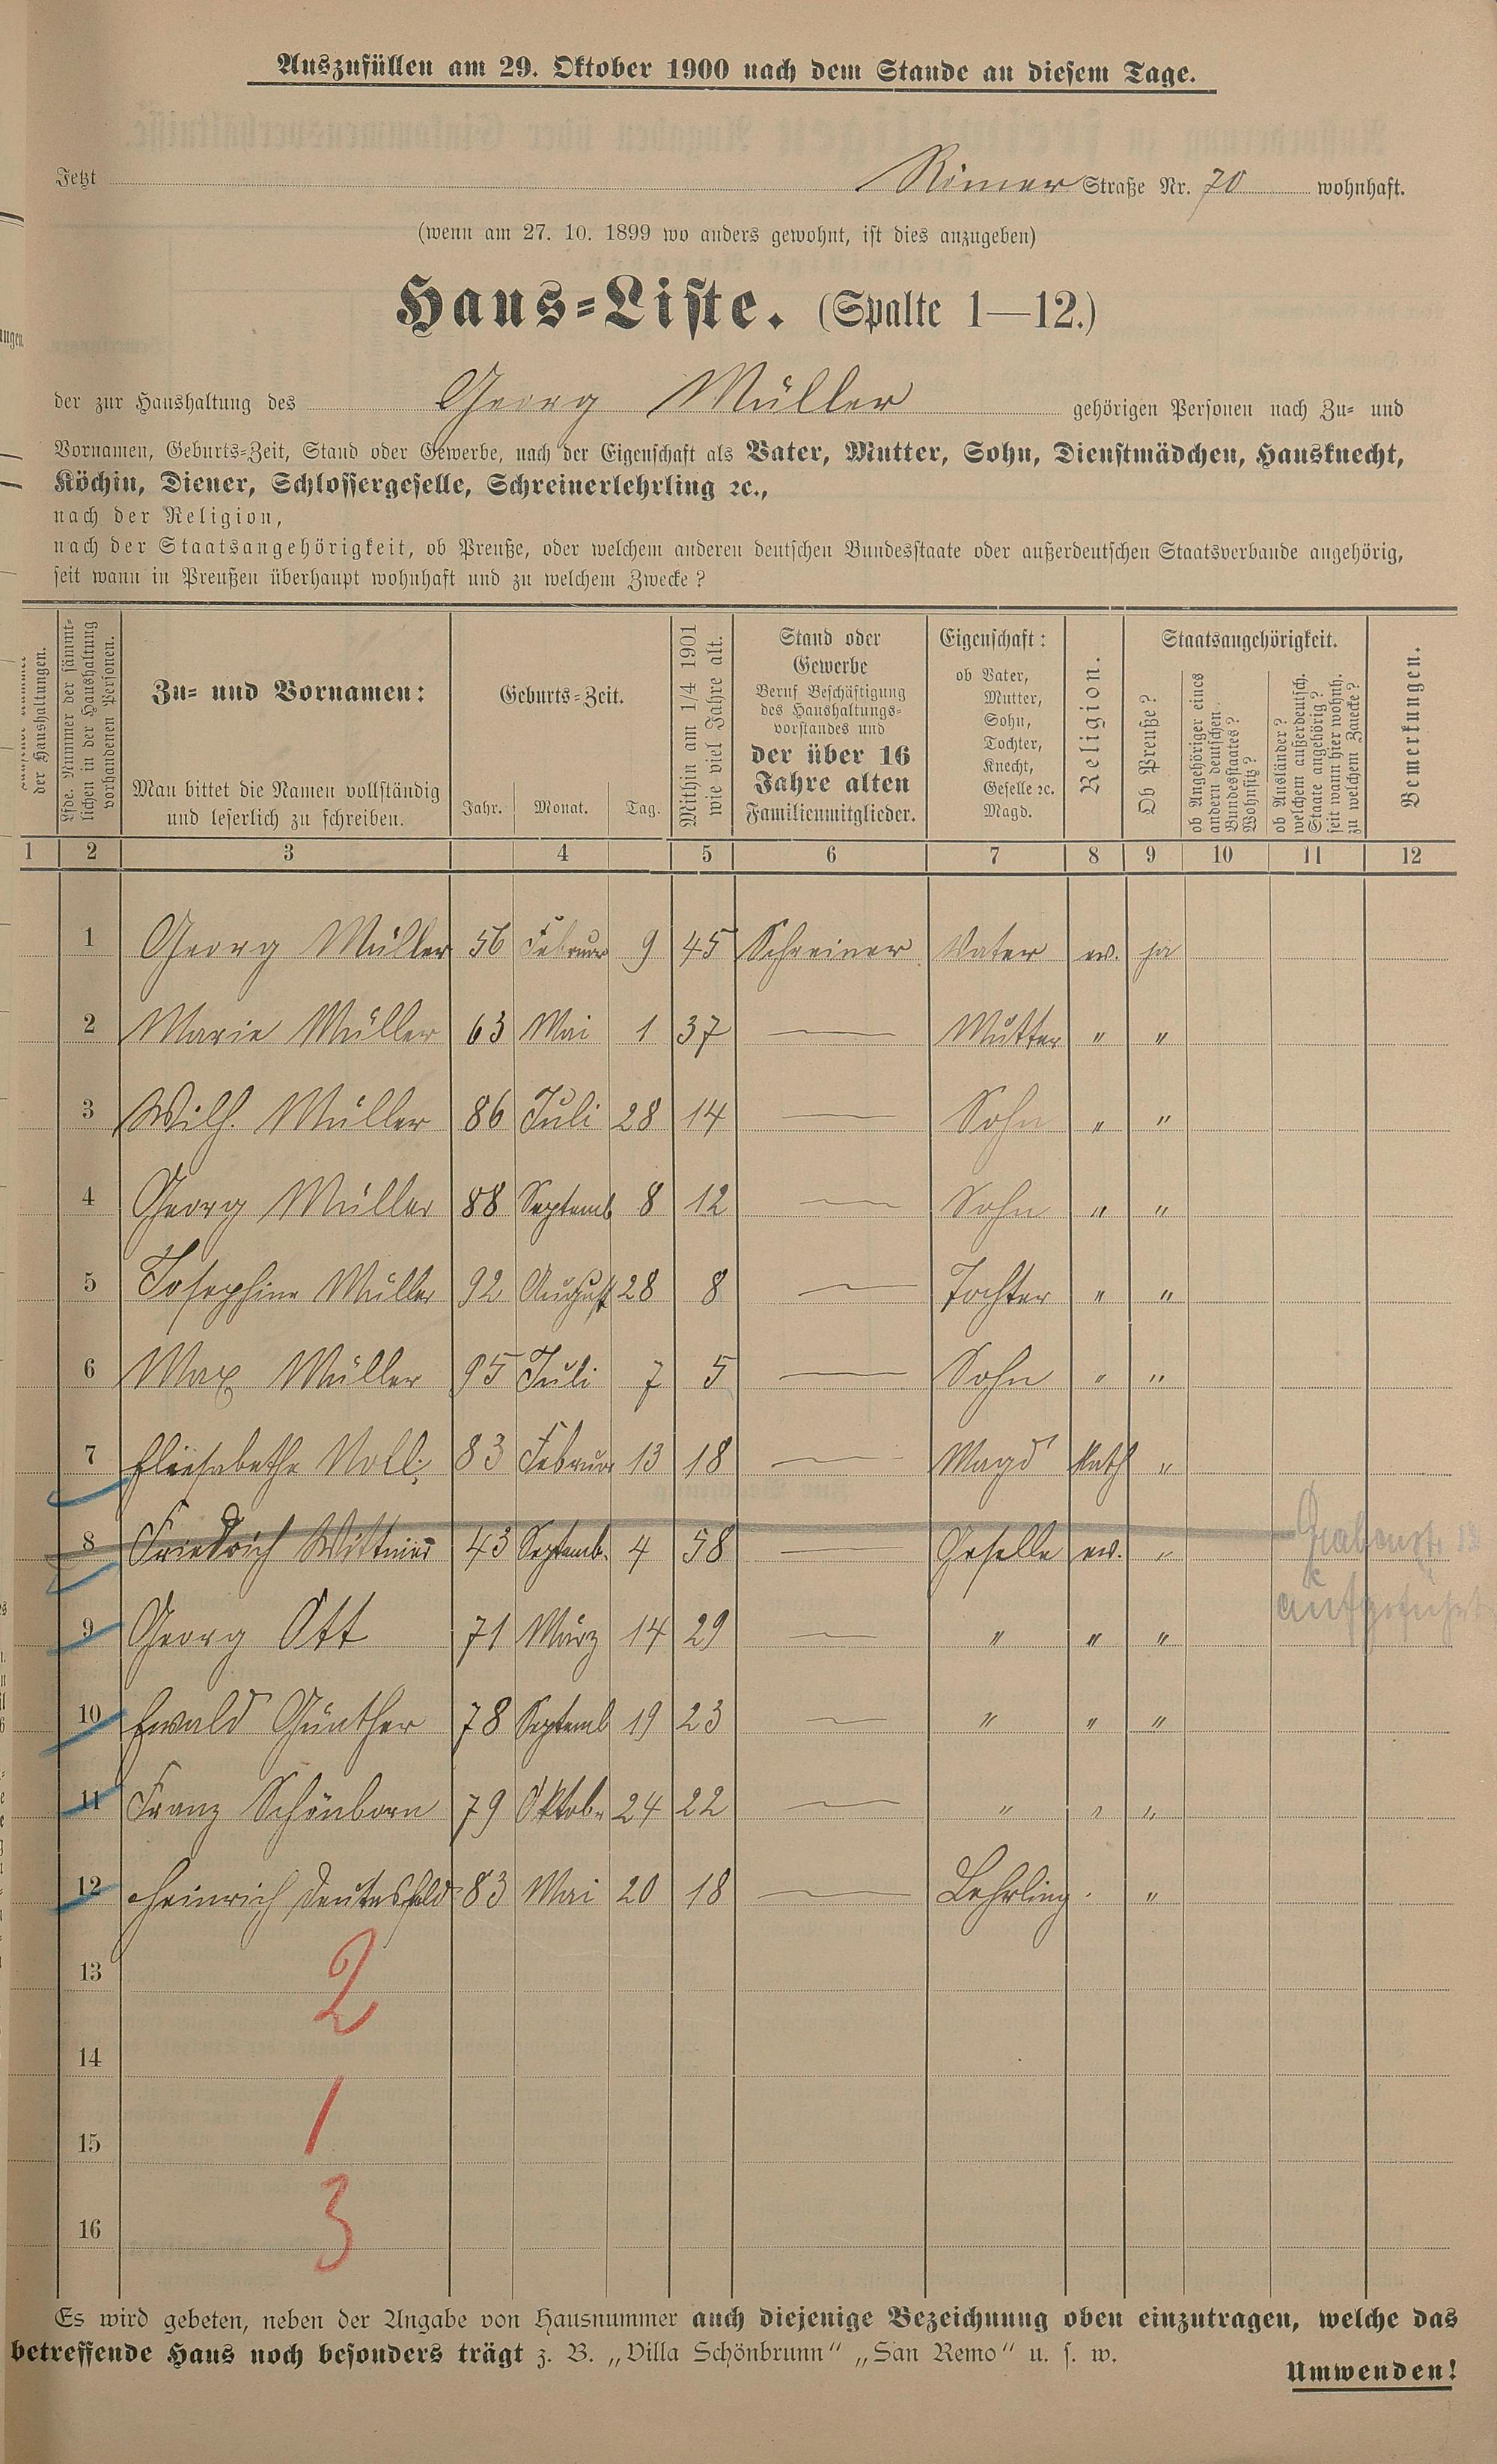 Auszufüllen am 29. Oktober 1900 nach dem Stande an diesem Tage.
Jetzt Römer Straße Nr. 70 wohnhaft.
(wenn am 27. 10. 1899 wo anders gewohnt, ist dies anzugeben)
Haus-Liste. (Spalte 1—12.)
der zur Haushaltung des Georg Müller gehörigen Personen nach Zu- und
Vornamen, Geburts-Zeit, Stand oder Gewerbe, nach der Eigenschaft als Vater, Mutter, Sohn, Dienstmädchen, Hausknecht,
Köchin, Diener, Schlossergeselle, Schreinerlehrling ꝛc.,
nach der Religion,
nach der Staatsangehörigkeit, ob Preuße, oder welchem anderen deutschen Bundesstaate oder außerdeutschen Staatsverbande angehörig,
seit wann in Preußen überhaupt wohnhaft und zu welchem Zwecke?
der Haushaltungen.
Lfde. Nummer der sämmt-
lichen in der Haushaltung
vorhandenen Personen.
Zu- und Vornamen:
Man bittet die Namen vollständig
und leserlich zu schreiben.
Geburts-Zeit.
Jahr. Monat. Tag.
Mithin am 1/4 1901
wie viel Jahre alt.
Stand oder
Gewerbe
Beruf Beschäftigung
des Haushaltungs-
vorstandes und
der über 16
Jahre alten
Familienmitglieder.
Eigenschaft:
ob Vater,
Mutter,
Sohn,
Tochter,
Knecht,
Geselle ꝛc.
Magd.
Religion.
Staatsangehörigkeit.
Ob Preuße?
ob Angehöriger eines
andern deutschen
Bundesstaates?
Wohnsitz?
ob Ausländer?
welchem außerdeutsch.
Staate angehörig?
seit wann hier wohnh.
zu welchem Zwecke?
Bemerkungen.
1 2 3 4 5 6 7 8 9 10 11 12
1 Georg Müller 56 Februar 9 45 Schreiner Vater ev. ja
2 Marie Müller 63 Mai 1 37 — Mutter " "
3 Wilh. Müller 86 Juli 28 14 — Sohn " "
4 Georg Müller 88 Septemb 8 12 — Sohn " "
5 Josephine Müller 92 August 28 8 — Tochter " "
6 Max Müller 95 Juli 7 5 — Sohn " "
7 Eliesabethe Noll 83 Februar 13 18 — Magd kath "
8 Friedrich 43 Septemb. 4 58 — Geselle ev. " Grabenstr.
aufgeführt
9 Georg Ott 71 März 14 29 — " " "
10 Ewald Günther 78 Septemb 19 23 — " " "
11 Franz Schönborn 79 Oktob. 24 22 — " " "
12 Heinrich 83 Mai 20 18 — Lehrling. "
13
2
14
1
15
3
16
Es wird gebeten, neben der Angabe von Hausnummer auch diejenige Bezeichnung oben einzutragen, welche das
betreffende Haus noch besonders trägt z. B. „Villa Schönbrunn“ „San Remo“ u. s. w.
Umwenden!